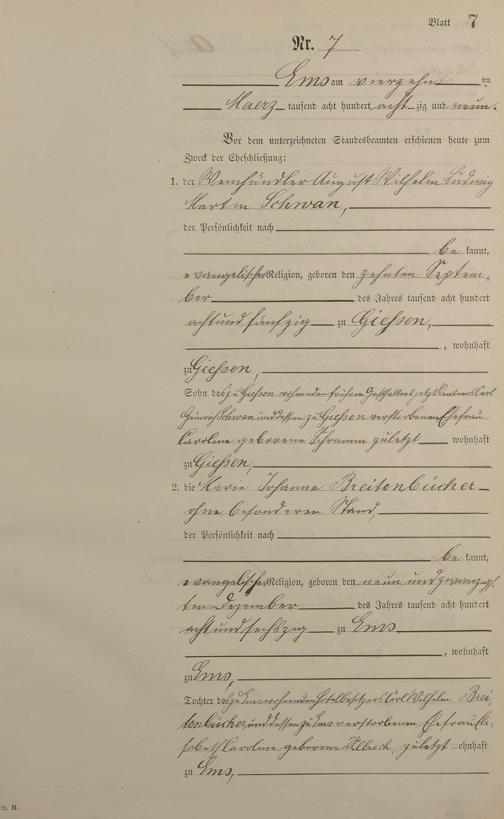 Blatt 7
Nr. 7
Ems am vierzehn ten
Maerz tausend acht hundert acht zig und neun.
Vor dem unterzeichneten Standesbeamten erschienen heute zum
Zweck der Eheschließung:
1. der Weinhändler August Wilhelm Ludwig
Martin Schwan,
der Persönlichkeit nach
be kannt,
evangelischer Religion, geboren den zehnten Septem-
ber des Jahres tausend acht hundert
achtundfünfzig zu Giessen,
, wohnhaft
zu Giessen,
Sohn des zu Giessen wohnenden früheren Gasthalters jetzt Rentners Carl
Heinrich Schwan und dessen zu Giessen verstorbenen Ehefrau
Caroline geborene Schramm zuletzt wohnhaft
zu Giessen,
2. die Marie Johanna Breitenbücher
ohne besonderen Stand,
der Persönlichkeit nach
be kannt,
evangelischer Religion, geboren den neun und zwanzigs-
ten Dezember des Jahres tausend acht hundert
achtundsechszig zu Ems
, wohnhaft
zu Ems,
Tochter des zu Ems wohnenden Hotelbesitzers Carl Wilhelm Brei-
tenbücher und dessen zu Ems verstorbenen Ehefrau Eli-
sabeth Caroline geborene zuletzt wohnhaft
zu Ems,